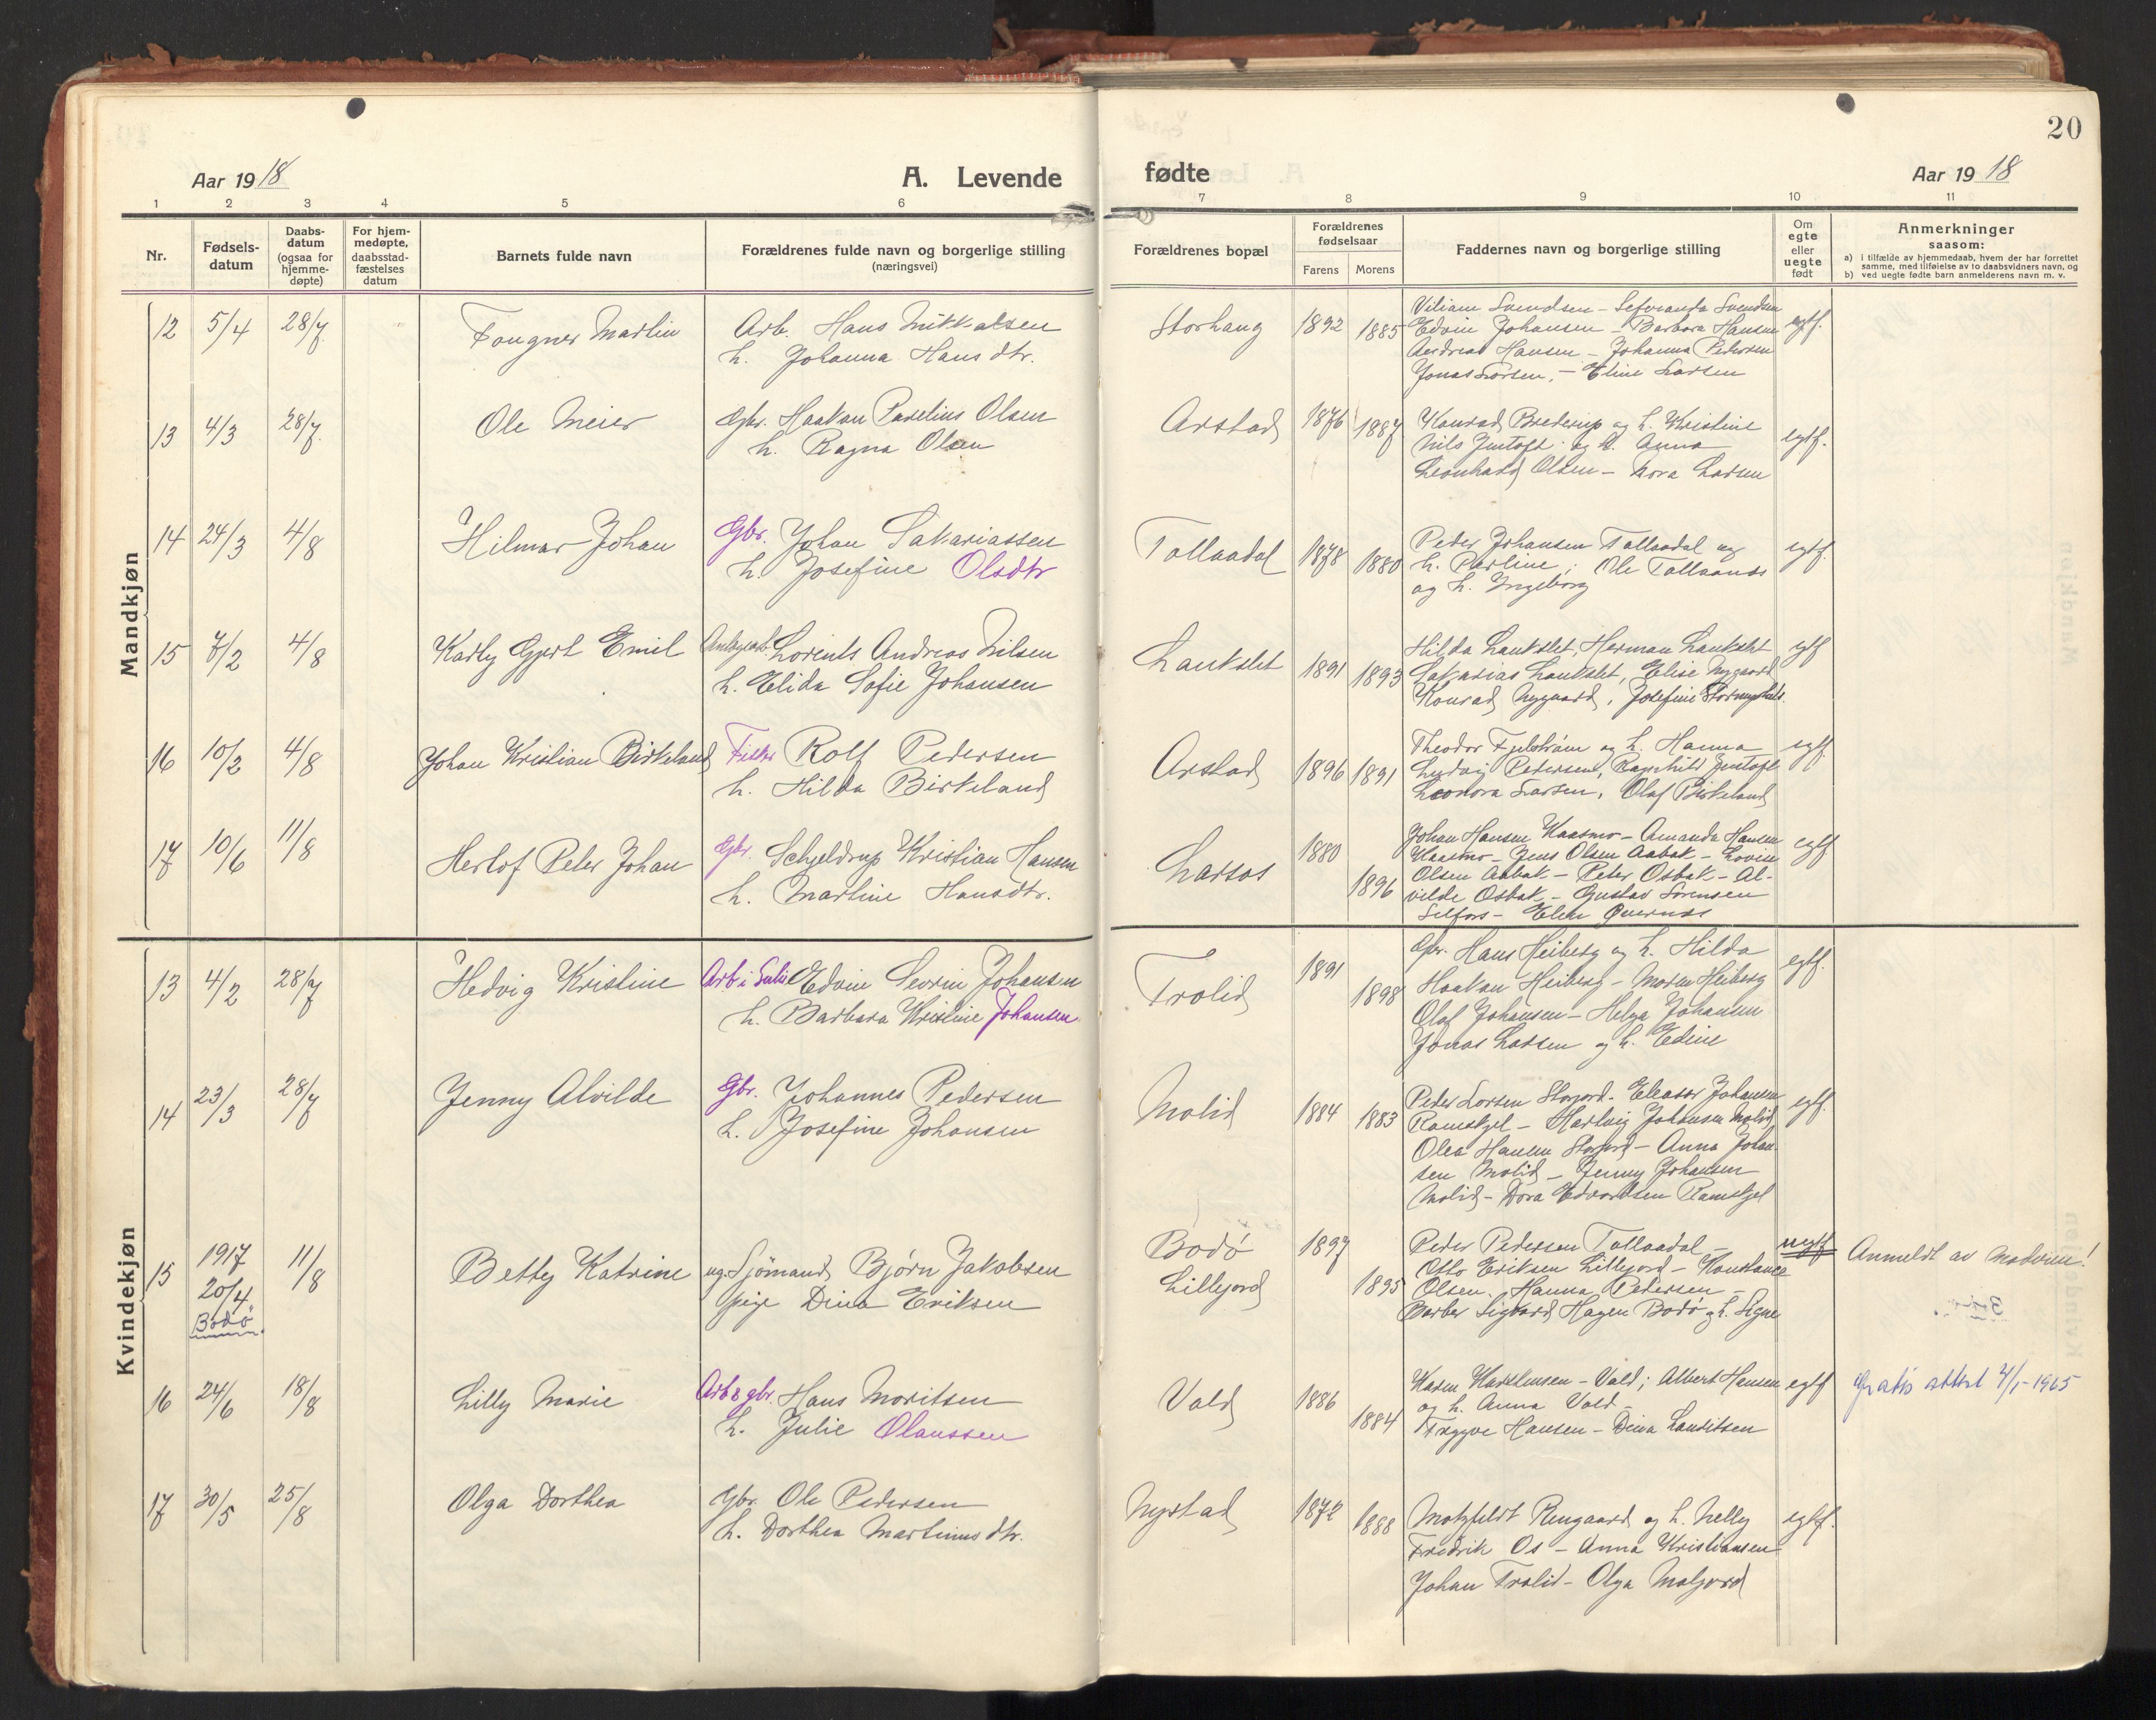 20
Aar 1918
A. Levende
fødte
Aar 1918
1 2 3 4 5 6 7 8 9 10 11
Nr.
Fødsels-
datum
Daabs-
datum
(ogsaa for
hjemme-
døpte)
For hjem-
medøpte,
daabsstad-
fæstelses
datum
Barnets fulde navn
Forældrenes fulde navn og borgerlige stilling
(næringsvei)
Forældrenes bopæl
Forældrenes
fødselsaar
Farens Morens
Faddernes navn og borgerlige stilling
Om
egte
eller
uegte
født
Anmerkninger
saasom:
a) i tilfælde av hjemmedaab, hvem der har forrettet
samme, med tilføielse av to daabsvidners navn, og
b) ved uegte fødte barn anmelderens navn m. v.
Mandkjøn
12 5/4 28/7 Fougner Martin
Arb. Hans Mikkalsen
h. Johanna Hansdtr.
Storhaug 1892 1885
Viliam Svendsen - Svendsen
Edvin Johansen - Barbara Hansen
Andreas Hansen - Johanna Pedersen
Jonas Larsen, - Eline Larsen
egtf.
13 4/3 28/7 Ole Meier
Gbr. Haakon Paselius Olsen
h. Ragna Olsen
Arstad 1876 1887
Konrad Brederup og h. Kristine
Nils Jentoft og h. Anna
Leonhard Olsen - Nora Larsen
egtf.
14 24/3 4/8 Hilmar Johan
Gbr. Johan Sakariassen
h. Josefine Olsdtr
Tollaadal 1878 1880
Peder Johansen Tollaadal og
h. Perline; Ole Tollaanes
og h. Ingeborg
egtf.
15 7/2 4/8 Karly Gjert Emil
Lorents Andreas Nilsen
h. Elida Sofie Johansen
Laukslet 1891 1893
Hilda Laukslet, Herman Laukslet
Sakarias Laukslet, Elise Nygaard
Konrad Nygaard, Josefine
egtf
16 10/2 4/8 Johan Kristian Birkeland
Fisker Rolf Pedersen
h. Hilda Birkeland
Arstad 1896 1891
Theodor Fjelstrøm og h. Hanna
Ludvig Pedersen, Ragnhild Jentoft
Leonora Larsen, Olaf Birkeland
egtf.
17 10/6 11/8 Herlof Peter Johan
Gbr. Schjeldrup Kristian Hansen
h. Martine Hansdtr.
Larsos 1880 1896
Johan Hansen Kaasmo - Amanda Hansen
Kaasmo - Jens Olsen Aabak - Lovise
Olsen Aabak - Peter Osbak - Al-
vilde Osbak - Gustav Sørensen
Selfors - Elen
egtf
Kvindekjøn
13 4/2 28/7 Hedvig Kristine
Arb i Sulis Edvin Sevrin Johansen
h. Barbara Kristine Johansen
Trolid 1891 1898
Gbr. Hans Heiberg og h. Hilda
Haakon Heiberg - Maren Heiberg
Olaf Johansen - Helga Johansen
Jonas Larsen og h. Edine
egtf.
14 23/3 28/7 Jenny Alvilde
Gbr. Johannes Pedersen
h. Josefine Johansen
Molid 1884 1883
Peder Larsen Storjord - Eleasar Johansen
Ramskjel - Hartvig Johansen Molid
Olea Hansen Storjord - Anna Johan-
sen Molid - Jenny Johansen
Molid - Dora Edvardsen Ramskjel
egtf.
15 1917 20/4 Bodø. 11/8 Betty Katrine
ug. Sjømand Bjørn Jakobsen
pige Dina Eriksen
Bodø
Lillejord
1897 1895
Peder Pedersen Tollaadal -
Otto Eriksen Lillejord - Konstanse
Olsen, Hanna Pedersen -
Barber Sigvard Hagen Bodø og h. Signe
uegtf
Anmeldt av moderen!
16 24/6 18/8 Lilly Marie
Arb & gbr. Hans Moritsen
h. Julie Olaussen
Vold 1886 1884
Karen Karelinsen - Vold; Albert Hansen
og h. Anna Vold -
Trygve Hansen - Dina Lauritsen
egtf
Gratis attest 4/1-1965
17 30/5 25/8 Olga Dorthea
Gbr. Ole Pedersen
h. Dorthea Martinusdtr.
Nystad 1872 1888
Motzfeldt Rengaard og h. Nelly
Fredrik Os - Anna Kristiansen
Johan Trolid - Olga Moljord
egtf.